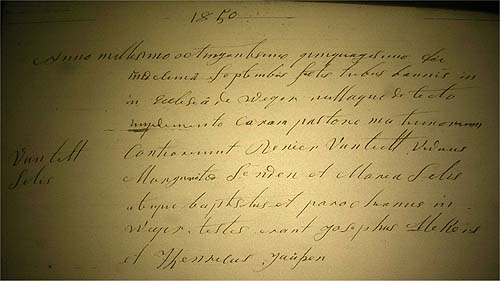 1850
Anno millesimo octingentesimo quinquagesimo die
undecima Septembris factis tribus bannis in
in Ecclesiâ de Weyer nullaque detecto
impedimento coram pastore matrimonium
Vantilt
Contraxerunt Renier Vantilt viduus
Selis
Margareta Lenden et Maria Selis
uterque baptistus et parochianus in
Weyer testes erant Josephus Mellens
et Henricus